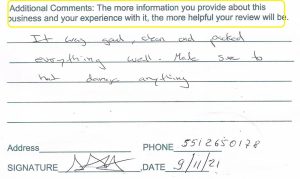 Additional Comments: The more information you provide about this
business and your experience with it, the more helpful your review will be.
It was good, stan and packed
everything well. Make sure to
not damage anything
Address PHONE 5512650178
SIGNATURE DATE 9/11/21